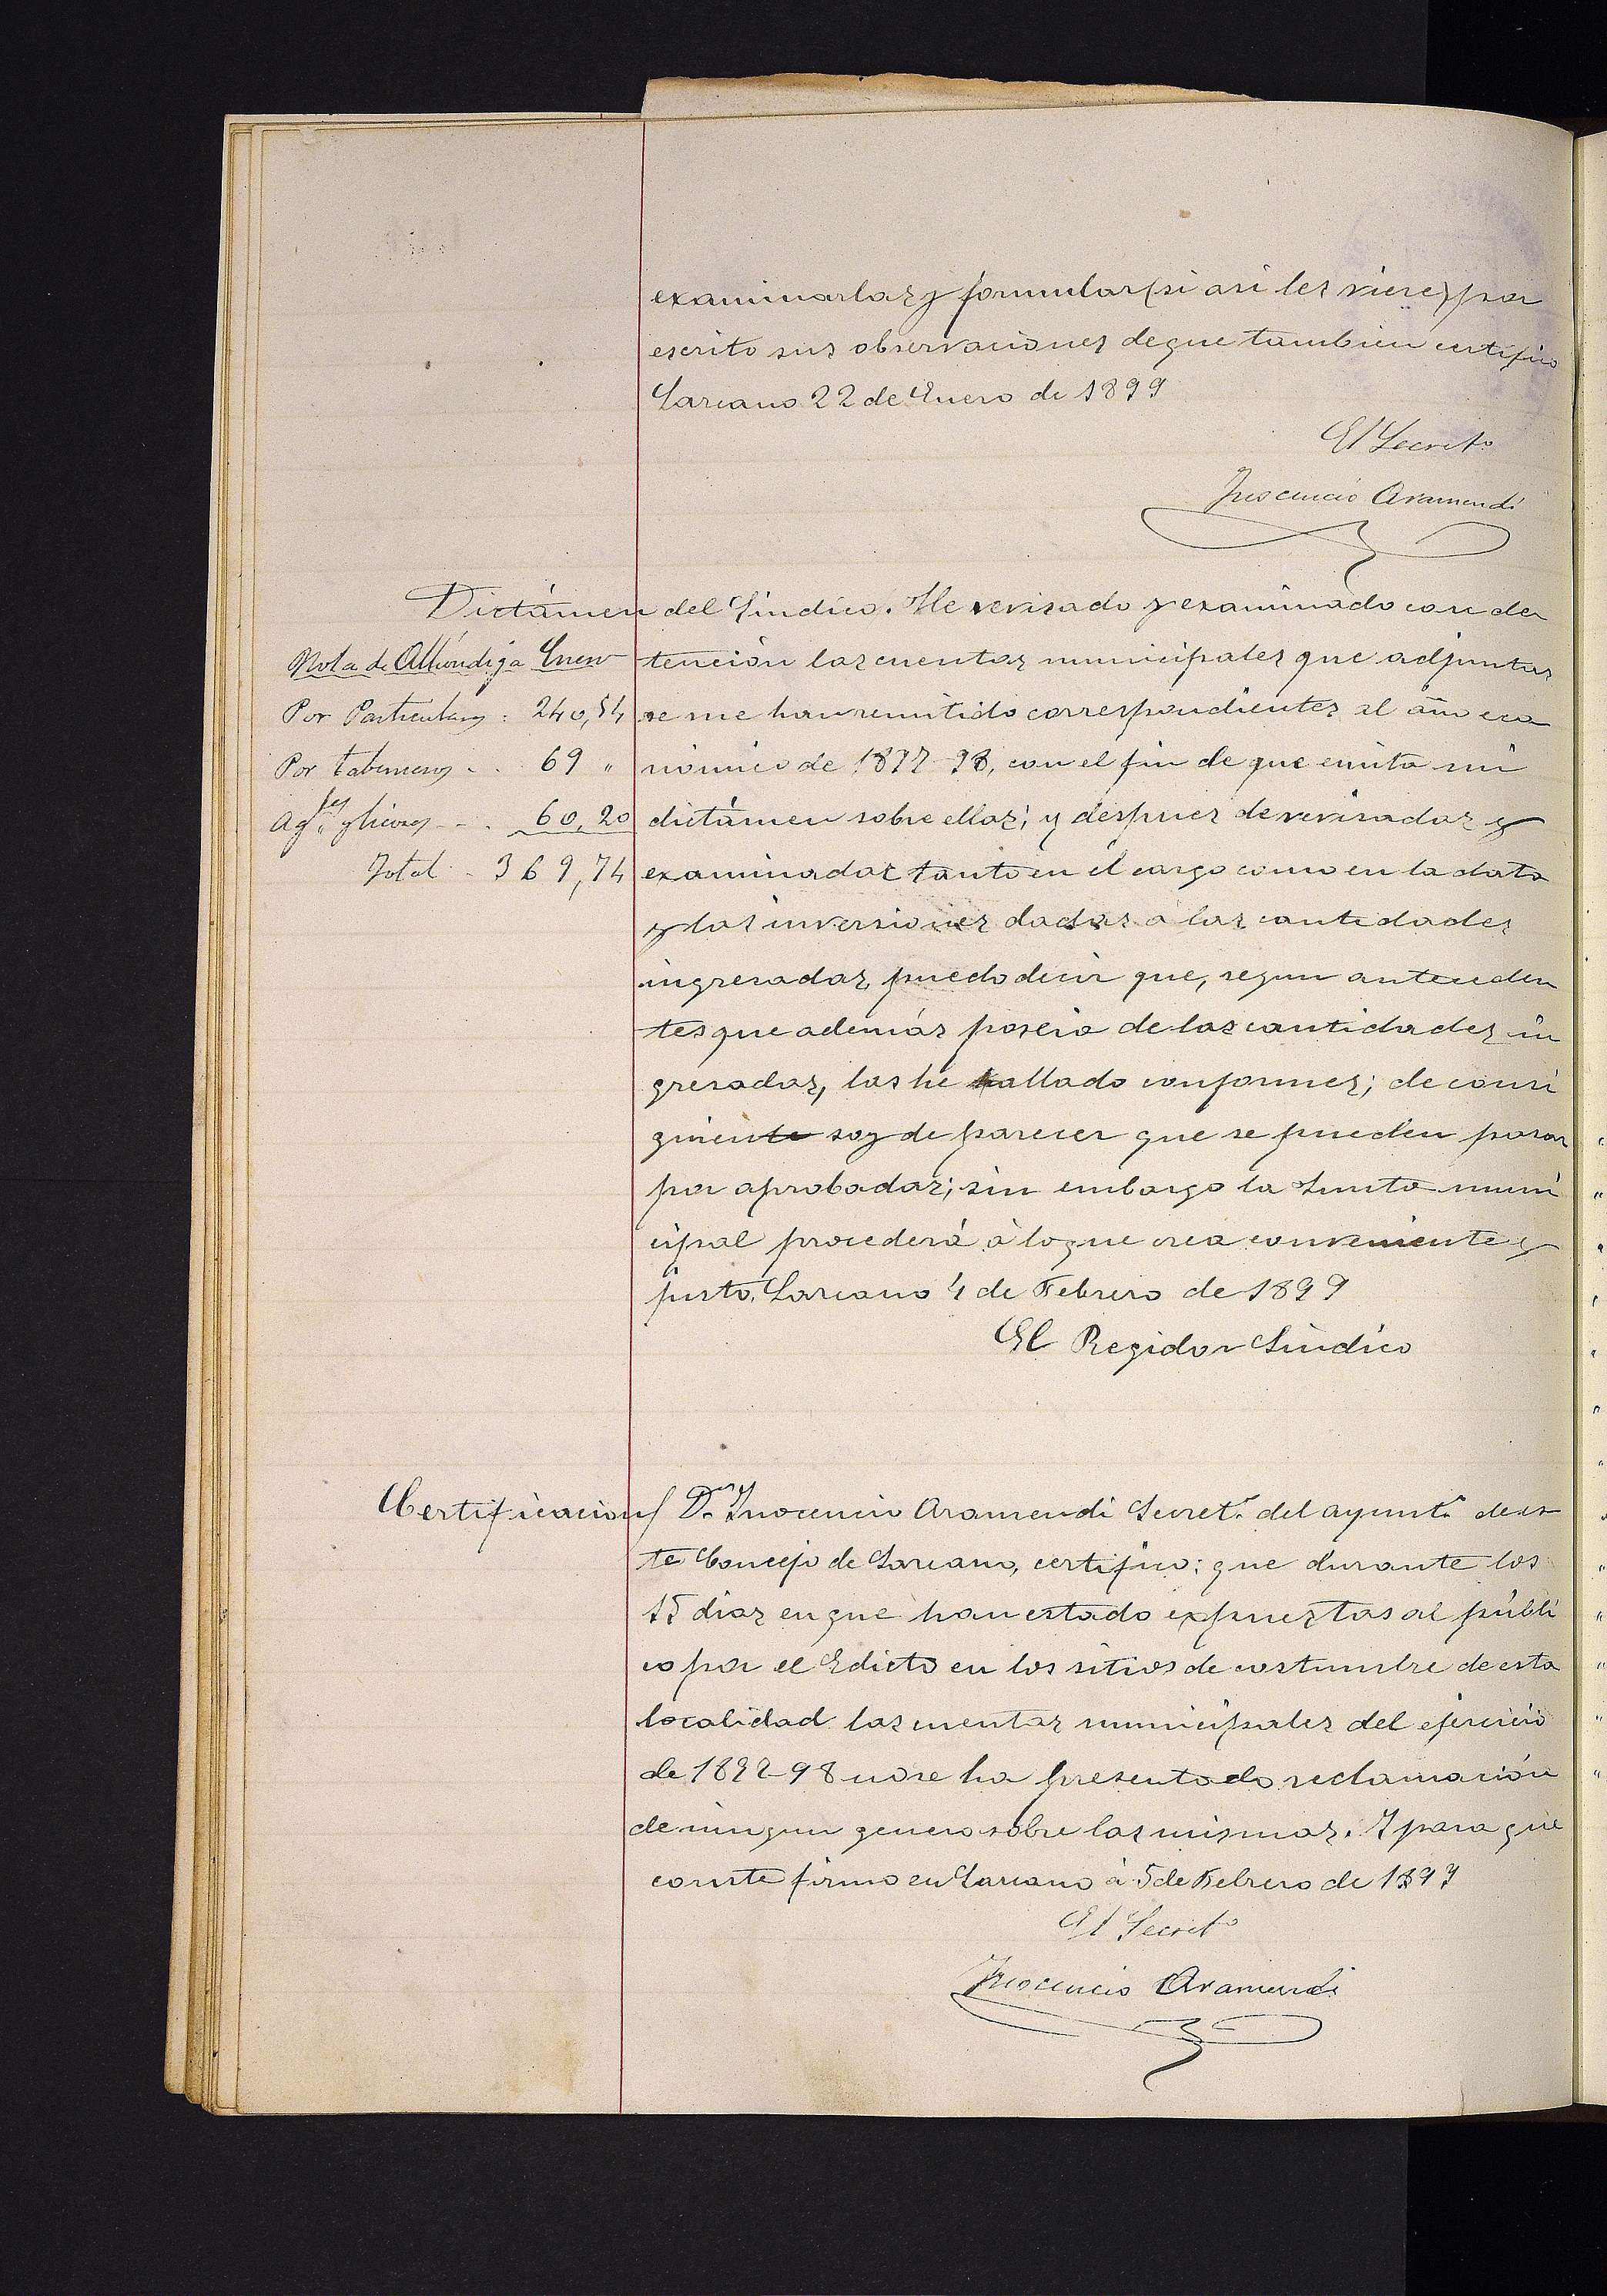 examinarlas y formular (si asi les viere) por
escrito sus observaciones de que tambien certifico
Larcano 22 de Enero de 1899
El Secret.o
Inocencio Aramendi
Dictámen del Síndico. He revisado y examinado con de
tención las cuentas municipales que adjuntas
se me han remitido correspondientes al año eco
nómico de 1897-98, con el fin de que emita mi
dictámen sobre ellas; y despues de revisadas y
examinadas tanto en el cargo como en la data
y las inversiones dadas á las cantidades
ingresadas, puedo decir que, segun anteceden
tes que además poseia de las cantidades in
gresadas, las he hallado conformes; de consi
guiente soy de parecer que se pueden pasar
por aprobadas; sin embargo la Junta muni
cipal procederá á lo que crea conveniente y
justo. Larcano 4 de Febrero de 1899
El Regidor Síndico
Nota de Alhóndiga Enero
Por Particulares : 240,54
Por taberneros . . 69 "
Ag.tes y licores - . 60,20
Total - 369,74
Certificacion/ D.n Inocencio Aramendi Secret.o del ayunt.o de es
te Concejo de Larcano, certifico: que durante los
15 dias en que han estado expuestas al públi
co por el Edicto en los sitios de costumbre de esta
localidad las cuentas municipales del ejercicio
de 1897-98 no se ha presentado reclamación
de ningun genero sobre las mismas. Y para que
conste firmo en Larcano á 5 de Febrero de 1899
El Secret.o
Inocencio Aramendi